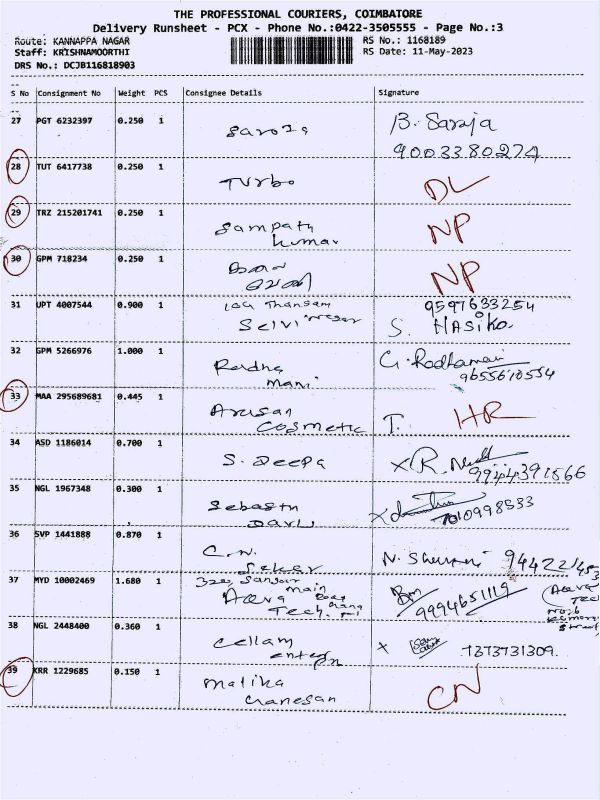 THE PROFESSIONAL COURIERS, COIMBATORE
Delivery Runsheet - PCX - Phone No.:0422-3505555 - Page No.:3
Route: KANNAPPA NAGAR
RS No.: 1168189
Staff: KRISHNAMOORTHI
RS Date: 11-May-2023
DRS No.: DCJB116818903
S No Consignment No Weight PCS Consignee Details Signature
27 PGT 6232397 0.250 1 Saroja B. Saroja
9003380274
28 TUT 6417738 0.250 1 Turbo DL
29 TRZ 215201741 0.250 1 Sampath NP
kumar
30 GPM 718234 0.250 1 NP
31 UPT 4007544 0.900 1 9597633254
Selvi S. HASiKa
32 GPM 5266976 1.000 1 Radha G. Radhamani
mani 9655610554
33 MAA 295689681 0.445 1 Arasan T. HR
Cosmetic
34 ASD 1186014 0.700 1 S. Deepa X R.
9944391566
35 NGL 1967348 0.300 1 X
7010998533
36 SVP 1441888 0.870 1 C.N. N.
Seker
37 MYD 10002469 1.680 1 main
Tech 9994651119
38 NGL 2448400 0.360 1 Cellam X 7373731309.
39 KRR 1229685 0.150 1 Malika CN
Ganesan